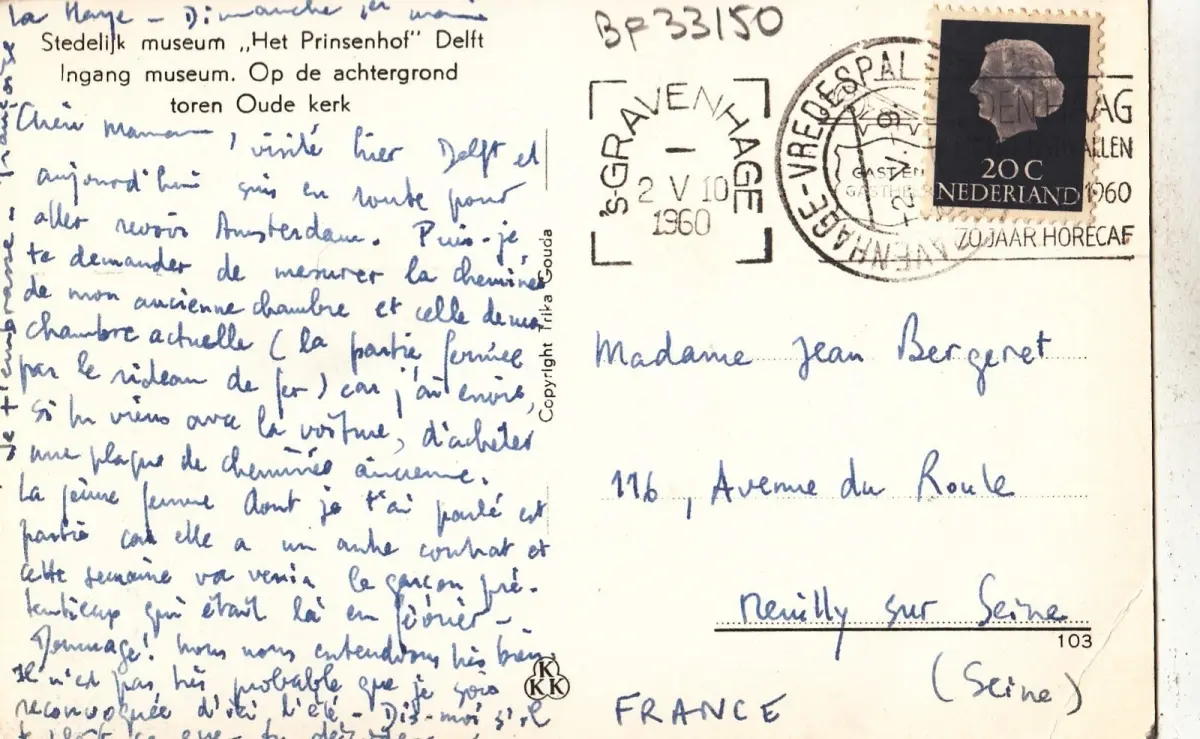 La Haye - Dimanche 1er
Stedelijk museum „Het Prinsenhof" Delft
Ingang museum. Op de achtergrond
toren Oude kerk
Chère maman, visité hier Delft et
aujourd'hui suis en route pour
aller revoir Amsterdam. Puis-je
te demander de mesurer la cheminée
de mon ancienne chambre et celle de ma
chambre actuelle (la partie fermée
par le rideau de fer) car j'ai envie,
si tu viens avec la voiture, d'acheter
une plaque de cheminée ancienne.
La jeune femme dont je t'ai parlé est
partie car elle a un autre contrat et
cette semaine va venir le garçon pré-
tentieux qui était là en février -
Dommage! nous nous entendions très bien.
Il n'est pas très probable que je sois
reconvoquée d'ici l'été - Dis-moi s'il
te plaît ce que tu
Je t'embrasse. Françoise
Copyright Trika Gouda
KKK
BF33/50
's-GRAVENHAGE
2 V 10
1960
'S-GRAVENHAGE-VREDESPALEIS
DEN HAAG
1960
70 JAAR HORECAF
20 C
NEDERLAND
Madame Jean Bergeret
116, Avenue du Roule
Neuilly sur Seine
103
(Seine)
FRANCE